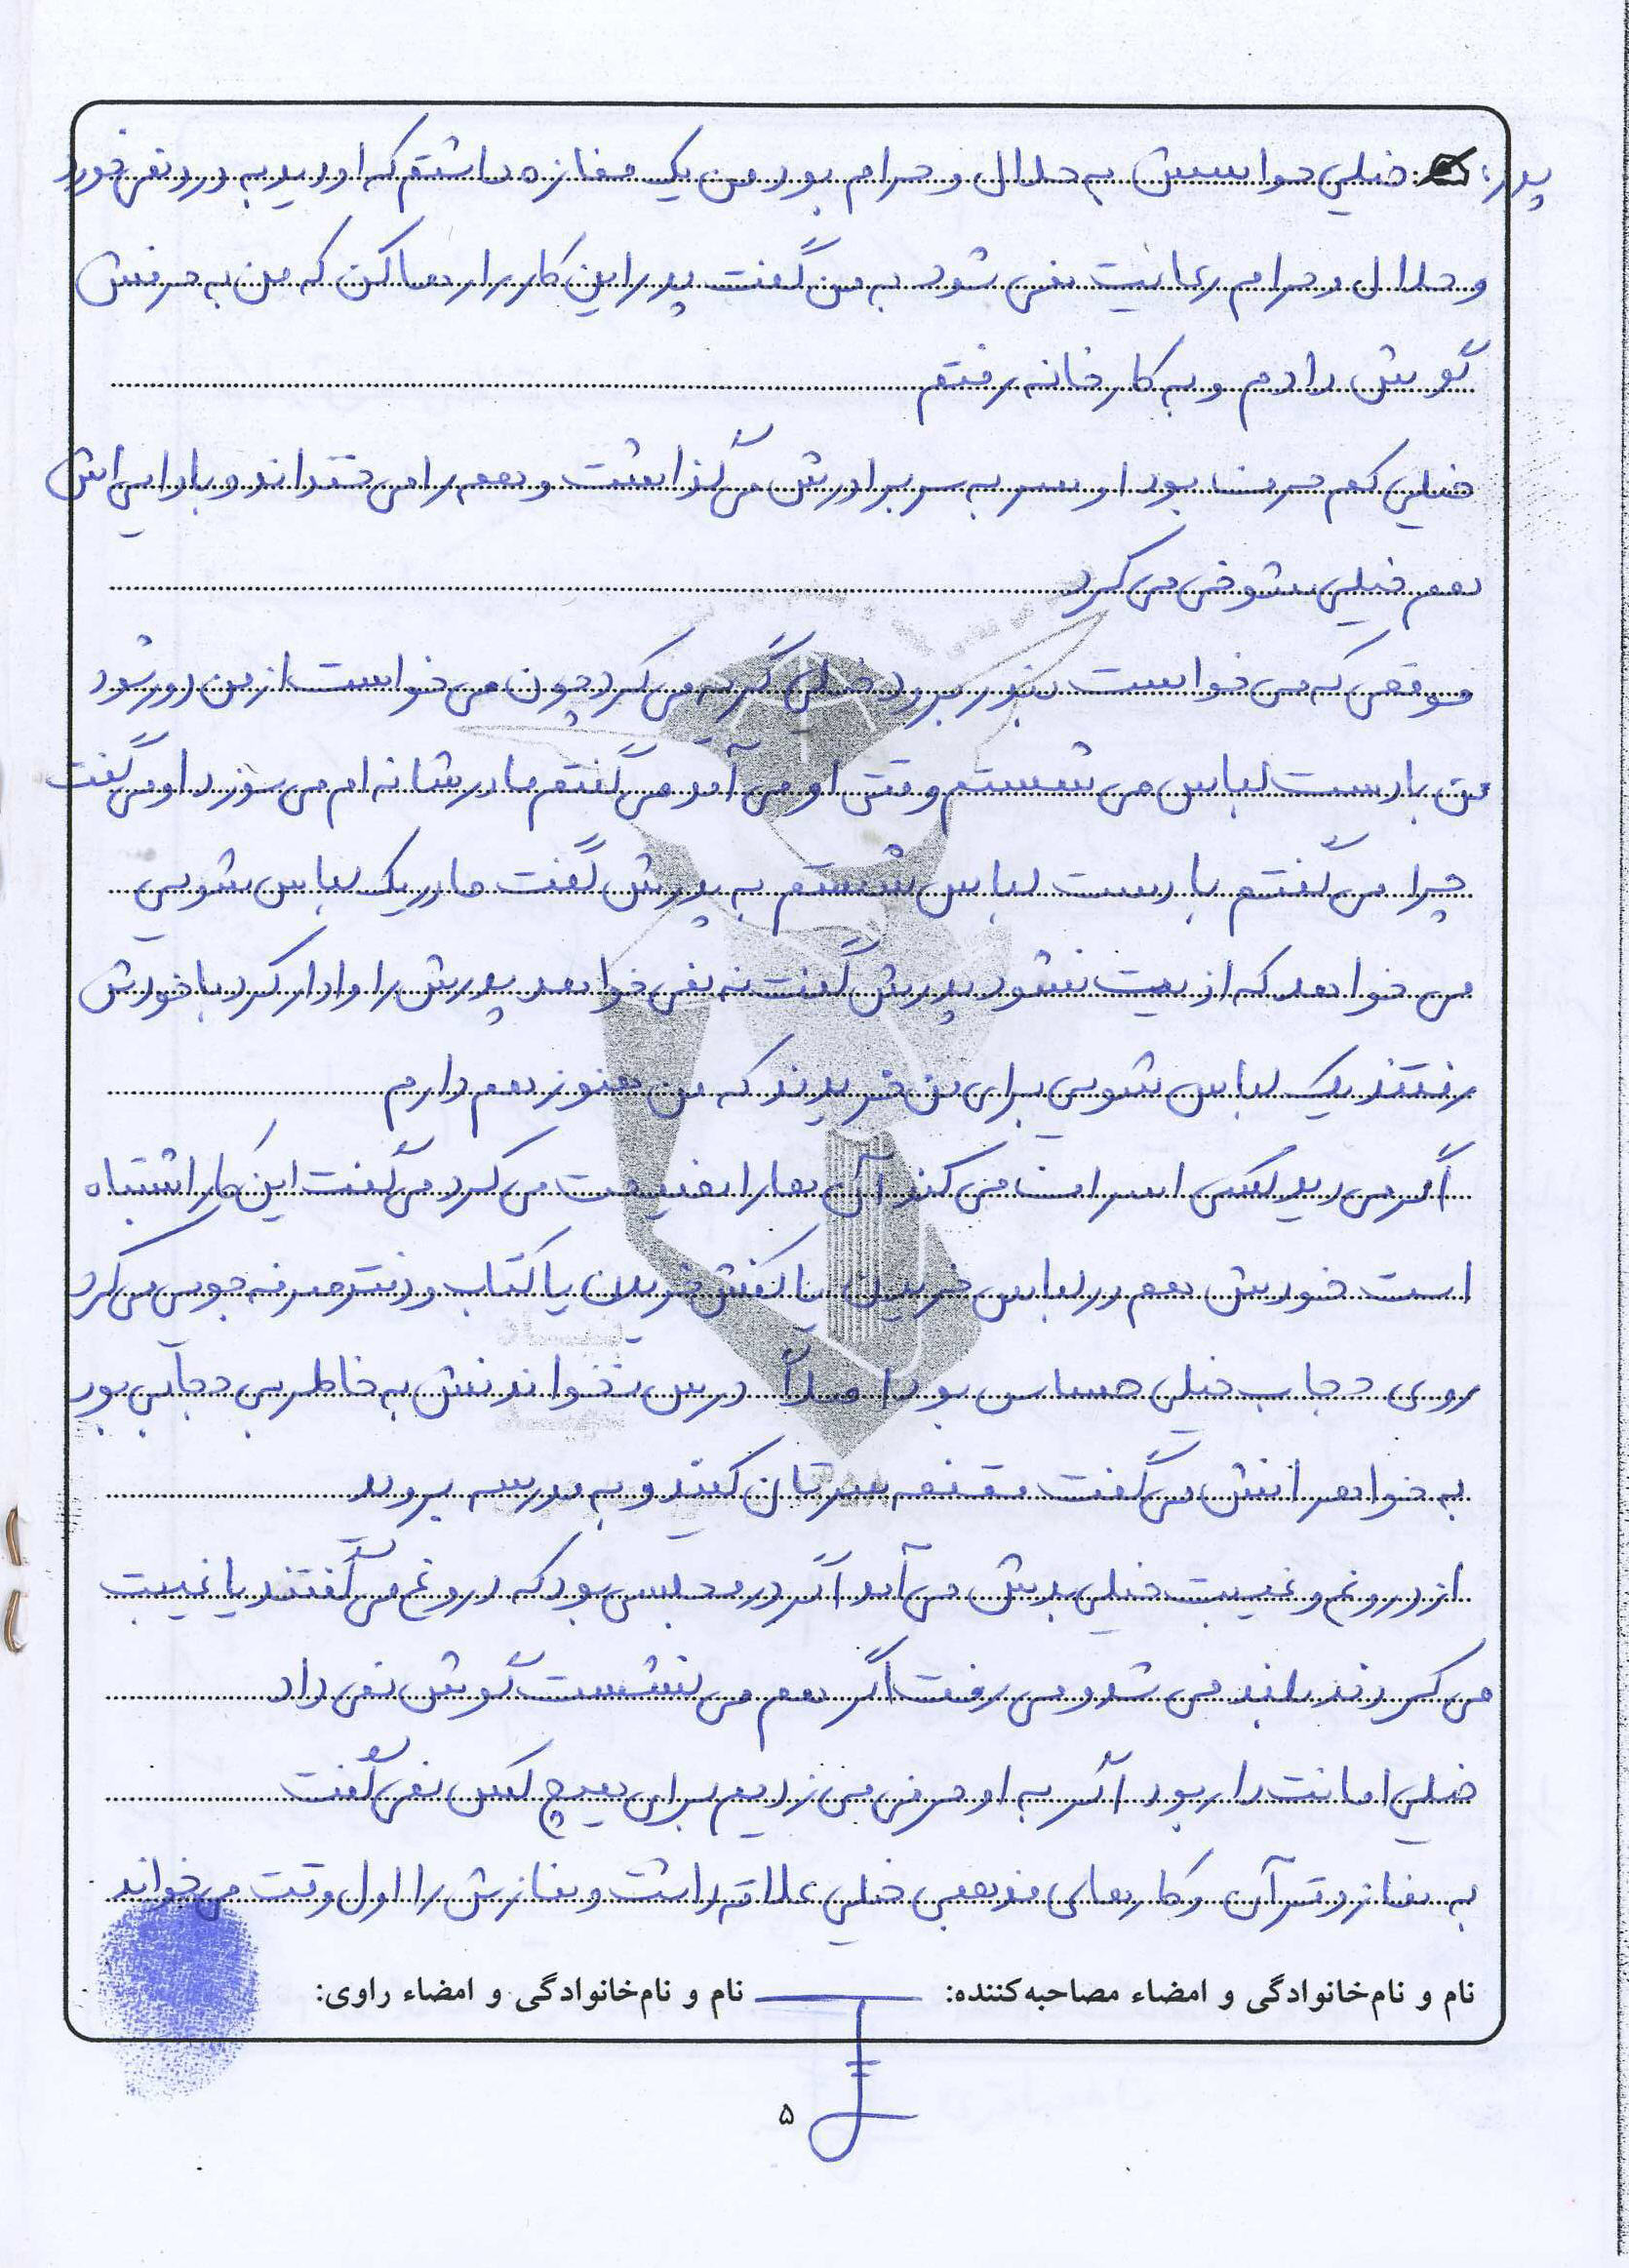 پدر: خیلی حواسش به حلال و حرام بود من یک مغازه داشتم که او دید به درد نمی خورد
و حلال و حرام رعایت نمی شود به من گفت پدر این کار را رها کن که من به حرفش
گوش دادم و به کارخانه رفتم
خیلی کم حرف بود او سر به سر برادرش می گذاشت و همه را می خنداند و با دایی اش
هم خیلی شوخی می کرد
موقعی که می خواست برود خیلی گریه می کرد چون می خواست از من دور شود
من با دست لباس می شستم وقتی او می آمد می گفتم مادر شانه ام می سوزد او می گفت
چرا می گفتم با دست لباس شستم به پدرش گفت مادر یک لباس شویی
می خواهد که اذیت نشود پدرش گفت نه نمی خواهد پدرش را وادار کرد با خودش
رفتند یک لباس شویی برای من خریدند که من هنوز هم دارم
اگر می دید کسی اسراف می کند آن ها را نصیحت می کرد می گفت این کار اشتباه
است خودش هم در لباس خریدن یا کفش خریدن یا کتاب و دفتر صرفه جویی می کرد
روی حجاب خیلی حساس بود اصلاً درس نخواندنش به خاطر بی حجابی بود
به خواهرانش می گفت مقنعه سرتان کنید و به مدرسه بروید
از دروغ و غیبت خیلی بدش می آمد اگر در مجلسی بود که دروغ می گفتند یا غیبت
می کردند بلند می شد و می رفت اگر هم می نشست گوش نمی داد
خیلی امانت دار بود اگر به او حرفی می زدیم برای هیچ کس نمی گفت
به نماز و قرآن و کارهای مذهبی خیلی علاقه داشت و نمازش را اول وقت می خواند
نام و نام‌خانوادگی و امضاء مصاحبه‌کننده: نام و نام‌خانوادگی و امضاء راوی:
۵